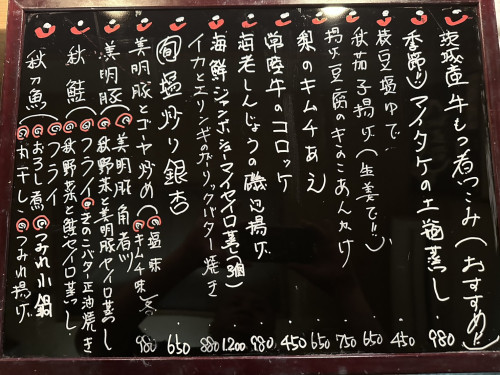 茨城産牛もつ煮こみ(おすすめ!!) 980
季節!!マイタケの土瓶蒸し 450
枝豆塩ゆで 650
秋茄子揚げ(生姜で!!) 750
揚げ豆腐のきのこあんかけ 650
梨のキムチあえ 450
常陸牛のコロッケ 980
海老しんじょうの磯辺揚げ 1.200
海鮮ジャンボシューマイセイロ蒸し(3個) 880
イカとエリンギのガリックバター焼き
旬塩炒り銀杏 650
美明豚とゴーヤ炒め(塩味 キムチ味) 980
美明豚 美明豚角煮
秋野菜と美明豚セイロ蒸し
秋鮭 フライ きのこバター正油焼き
秋野菜と鮭セイロ蒸し
秋刀魚 フライ
おろし煮 つみれ小鍋
丸干し つみれ揚げ